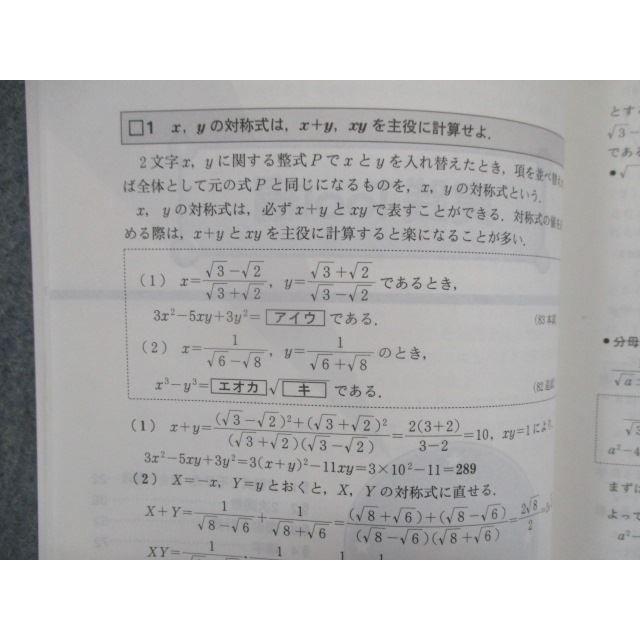 □1 x，yの対称式は，x+y，xyを主役に計算せよ．
2文字x，yに関する整式Pでxとyを入れ替えたとき，項を並べ替え
ば全体として元の式Pと同じになるものを，x，yの対称式という．
x，yの対称式は，必ずx+yとxyで表すことができる．対称式の値を
める際は，x+yとxyを主役に計算すると楽になることが多い．
(1) x=(√3−√2)/(√3+√2)，y=(√3+√2)/(√3−√2)であるとき，
3x²−5xy+3y²=アイウである．
(83本試
(2) x=1/(√6−√8)，y=1/(√6+√8)のとき，
x³−y³=エオカ√キである．
(82追試
(1) x+y=((√3−√2)²+(√3+√2)²)/((√3+√2)(√3−√2))=2(3+2)/(3−2)=10，xy=1により，
3x²−5xy+3y²=3(x+y)²−11xy=3×10²−11=289
(2) X=−x，Y=yとおくと，X，Yの対称式に直せる．
X+Y=1/(√8−√6)+1/(√8+√6)=((√8+√6)+(√8−√6))/((√8−√6)(√8+√6))=2√8/2
XY=1/(√8−√6)·
とす
√3−
である
●√
●分母
√a
√3
a²−4
まずは
よって
a²−